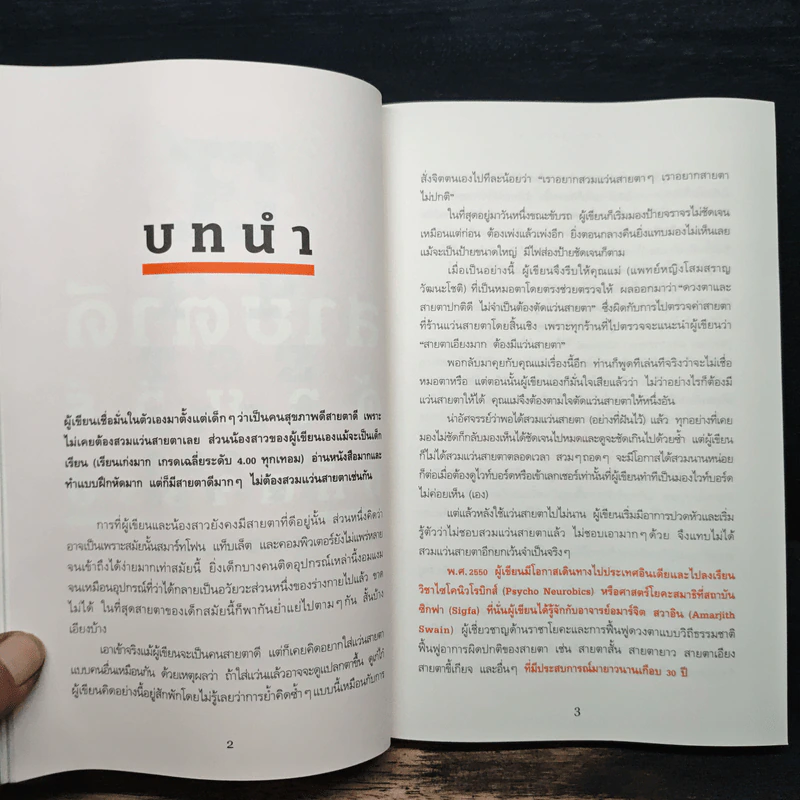 บทนำ
ผู้เขียนเชื่อมั่นในตัวเองมาตั้งแต่เด็กๆ ว่าเป็นคนสุขภาพดีสายตาดี เพราะ
ไม่เคยต้องสวมแว่นสายตาเลย ส่วนน้องสาวของผู้เขียนเองแม้จะเป็นเด็ก
เรียน (เรียนเก่งมาก เกรดเฉลี่ยระดับ 4.00 ทุกเทอม) อ่านหนังสือมากและ
ทำแบบฝึกหัดมาก แต่ก็มีสายตาดีมากๆ ไม่ต้องสวมแว่นสายตาเช่นกัน
การที่ผู้เขียนและน้องสาวยังคงมีสายตาที่ดีอยู่นั้น ส่วนหนึ่งคิดว่า
อาจเป็นเพราะสมัยนั้นสมาร์ทโฟน แท็บเล็ต และคอมพิวเตอร์ยังไม่แพร่หลาย
จนเข้าถึงได้ง่ายมากเท่าสมัยนี้ ยิ่งเด็กบางคนติดอุปกรณ์เหล่านี้งอมแงม
จนเหมือนอุปกรณ์ที่ว่าได้กลายเป็นอวัยวะส่วนหนึ่งของร่างกายไปแล้ว ขาด
ไม่ได้ ในที่สุดสายตาของเด็กสมัยนี้ก็พากันย่ำแย่ไปตามๆ กัน สั้นบ้าง
เอียงบ้าง
เอาเข้าจริงแม้ผู้เขียนจะเป็นคนสายตาดี แต่ก็เคยคิดอยากใส่แว่นสายตา
แบบคนอื่นเหมือนกัน ด้วยเหตุผลว่า ถ้าใส่แว่นแล้วอาจจะดูแปลกตาขึ้น ดูเก๋ไก๋
ผู้เขียนคิดอย่างนี้อยู่สักพักโดยไม่รู้เลยว่าการย้ำคิดซ้ำๆ แบบนี้เหมือนกับการ
2
สั่งจิตตนเองไปทีละน้อยว่า “เราอยากสวมแว่นสายตาๆ เราอยากสายตา
ไม่ปกติ”
ในที่สุดอยู่มาวันหนึ่งขณะขับรถ ผู้เขียนก็เริ่มมองป้ายจราจรไม่ชัดเจน
เหมือนแต่ก่อน ต้องเพ่งแล้วเพ่งอีก ยิ่งตอนกลางคืนยิ่งแทบมองไม่เห็นเลย
แม้จะเป็นป้ายขนาดใหญ่ มีไฟส่องป้ายชัดเจนก็ตาม
เมื่อเป็นอย่างนี้ ผู้เขียนจึงรีบให้คุณแม่ (แพทย์หญิงโสมสราญ
วัฒนะโชติ) ที่เป็นหมอตาโดยตรงช่วยตรวจให้ ผลออกมาว่า“ดวงตาและ
สายตาปกติดี ไม่จำเป็นต้องตัดแว่นสายตา” ซึ่งผิดกับการไปตรวจค่าสายตา
ที่ร้านแว่นสายตาโดยสิ้นเชิง เพราะทุกร้านที่ไปตรวจจะแนะนำผู้เขียนว่า
“สายตาเอียงมาก ต้องมีแว่นสายตา”
พอกลับมาคุยกับคุณแม่เรื่องนี้อีก ท่านก็พูดทีเล่นทีจริงว่าจะไม่เชื่อ
หมอตาหรือ แต่ตอนนั้นผู้เขียนเองก็มั่นใจเสียแล้วว่า ไม่ว่าอย่างไรก็ต้องมี
แว่นสายตาให้ได้ คุณแม่จึงต้องตามใจตัดแว่นสายตาให้หนึ่งอัน
น่าอัศจรรย์ว่าพอได้สวมแว่นสายตา (อย่างที่ฝันไว้) แล้ว ทุกอย่างที่เคย
มองไม่ชัดก็กลับมองเห็นได้ชัดเจนไปหมดและดูจะชัดเกินไปด้วยซ้ำ แต่ผู้เขียน
ก็ไม่ได้สวมแว่นสายตาตลอดเวลา สวมๆ ถอดๆ จะมีโอกาสได้สวมนานหน่อย
ก็ต่อเมื่อต้องดูไวท์บอร์ดหรือเข้าเลกเชอร์เท่านั้นที่ผู้เขียนทำทีเป็นมองไวท์บอร์ด
ไม่ค่อยเห็น (เอง)
แต่แล้วหลังใช้แว่นสายตาไปไม่นาน ผู้เขียนเริ่มมีอาการปวดหัวและเริ่ม
รู้ตัวว่าไม่ชอบสวมแว่นสายตาแล้ว ไม่ชอบเอามากๆ ด้วย จึงแทบไม่ได้
สวมแว่นสายตาอีกยกเว้นจำเป็นจริงๆ
พ.ศ. 2550 ผู้เขียนมีโอกาสเดินทางไปประเทศอินเดียและไปลงเรียน
วิชาไซโคนิวโรบิกส์ (Psycho Neurobics) หรือศาสตร์โยคะสมาธิที่สถาบัน
ซิกฟา (Sigfa) ที่นั่นผู้เขียนได้รู้จักกับอาจารย์อมาร์จิต สวาอิน (Amarjith
Swain) ผู้เชี่ยวชาญด้านราชาโยคะและการฟื้นฟูดวงตาแบบวิถีธรรมชาติ
ฟื้นฟูอาการผิดปกติของสายตา เช่น สายตาสั้น สายตายาว สายตาเอียง
สายตาขี้เกียจ และอื่นๆ ที่มีประสบการณ์มายาวนานเกือบ 30 ปี
3